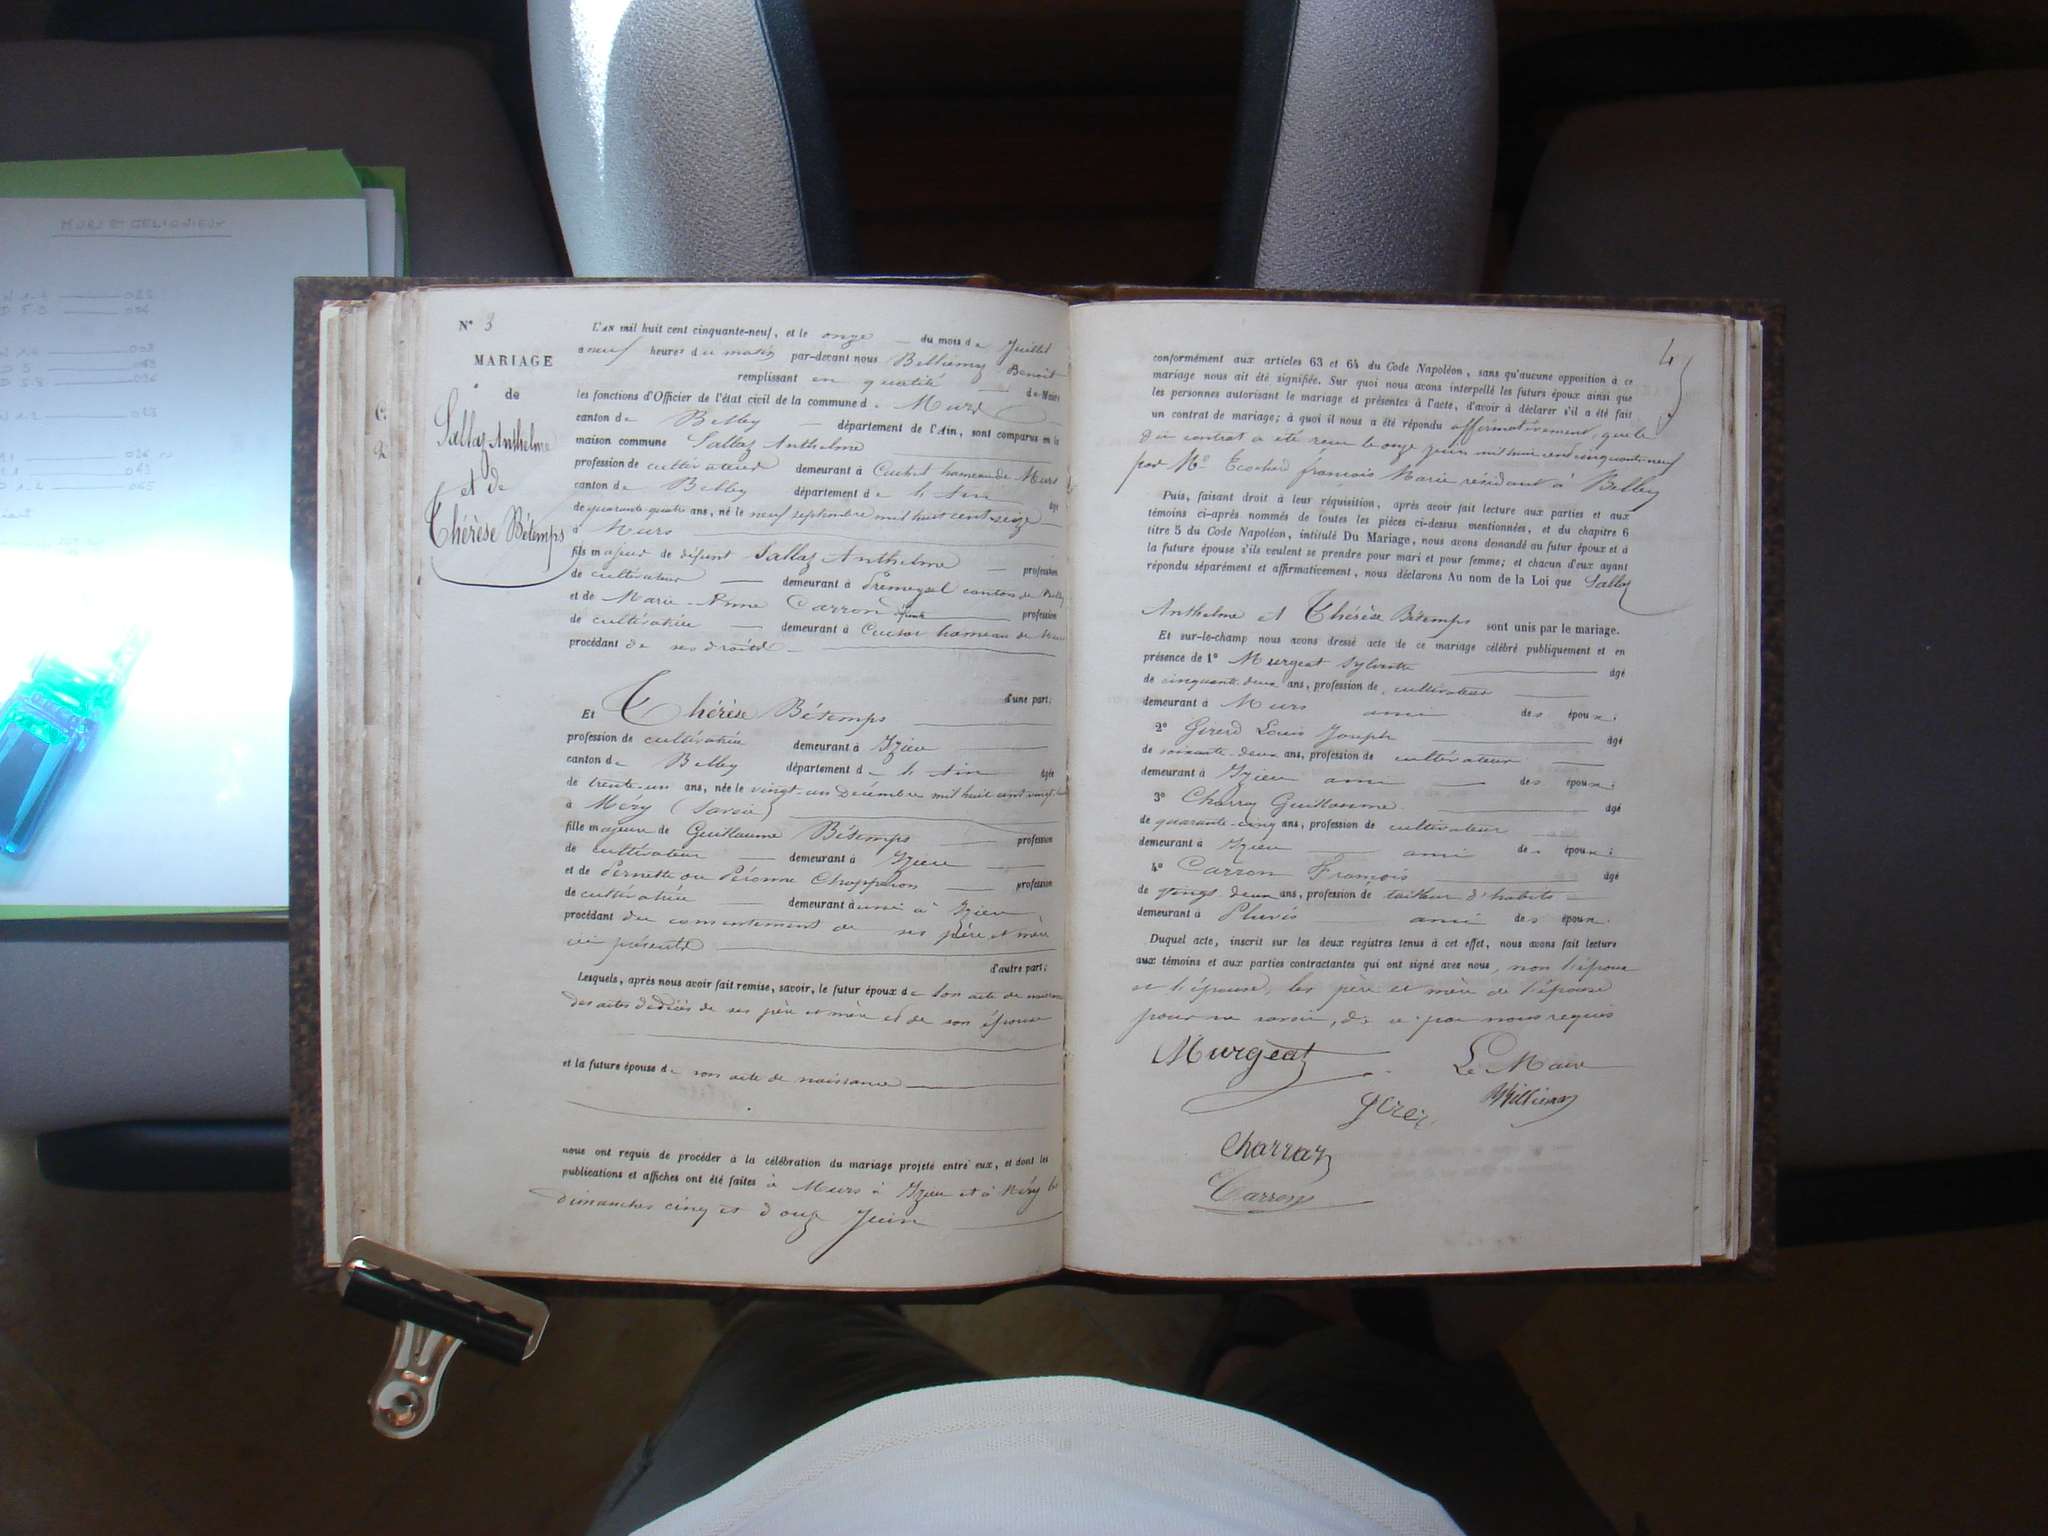 MURS ET GELIGNIEUX
N° 3
MARIAGE
de
Sallaz Anthelme
et de
Thérèse Bétemps
L'AN mil huit cent cinquante-neuf, et le onze du mois de Juillet
à neuf heures du matin par-devant nous Benoit
remplissant en qualité de Maire
les fonctions d'Officier de l'état civil de la commune de Murs
canton de Belley département de l'Ain, sont comparus en la
maison commune Sallaz Anthelme
profession de cultivateur demeurant à Cuchet hameau de Murs
canton de Belley département de l'Ain âgé
de quarante quatre ans, né le neuf septembre mil huit cent seize
à Murs
fils majeur de défunt Sallaz Anthelme profession
de cultivateur demeurant à Prémeyzel canton de Belley
et de Marie-Anne Carron défunte profession
de cultivatrice demeurant à hameau de Murs
procédant de ses droits
d'une part;
Et Thérèse Bétemps
profession de cultivatrice demeurant à Izieu
canton de Belley département de l'Ain âgée
de trente-un ans, née le vingt-un Décembre mil huit cent vingt
à Méry (Savoie)
fille majeure de Guillaume Bétemps profession
de cultivateur demeurant à Izieu
et de Pernette ou Péronne Chapperon profession
de cultivatrice demeurant aussi à Izieu
procédant du consentement de ses père et mère
ici présents
d'autre part;
Lesquels, après nous avoir fait remise, savoir, le futur époux de son acte de naissance
des actes décès de ses père et mère et de son épouse
et la future épouse de son acte de naissance
nous ont requis de procéder à la célébration du mariage projeté entre eux, et dont les
publications et affiches ont été faites à Murs à Izieu et à Méry les
dimanches cinq et douze Juin
4
conformément aux articles 63 et 64 du Code Napoléon, sans qu'aucune opposition à ce
mariage nous ait été signifiée. Sur quoi nous avons interpellé les futurs époux ainsi que
les personnes autorisant le mariage et présentes à l'acte, d'avoir à déclarer s'il a été fait
un contrat de mariage; à quoi il nous a été répondu affirmativement, que le
dit contrat a été reçu le onze juin mil huit cent cinquante neuf
par Me françois Marie résidant à Belley
Puis, faisant droit à leur réquisition, après avoir fait lecture aux parties et aux
témoins ci-après nommés de toutes les pièces ci-dessus mentionnées, et du chapitre 6
titre 5 du Code Napoléon, intitulé Du Mariage, nous avons demandé au futur époux et à
la future épouse s'ils veulent se prendre pour mari et pour femme; et chacun d'eux ayant
répondu séparément et affirmativement, nous déclarons Au nom de la Loi que Sallaz
Anthelme et Thérèse Bétemps sont unis par le mariage.
Et sur-le-champ nous avons dressé acte de ce mariage célébré publiquement et en
présence de 1° Murgeat Sylvestre âgé
de cinquante-deux ans, profession de cultivateur
demeurant à Murs ami des époux;
2° Girerd Louis Joseph âgé
de soixante-deux ans, profession de cultivateur
demeurant à Izieu ami des époux;
3° Charray Guillaume âgé
de quarante-cinq ans, profession de cultivateur
demeurant à Izieu ami des époux;
4° Carron François âgé
de vingt deux ans, profession de tailleur d'habits
demeurant à ami des époux.
Duquel acte, inscrit sur les deux registres tenus à cet effet, nous avons fait lecture
aux témoins et aux parties contractantes qui ont signé avec nous, non l'époux
et l'épouse, les père et mère de l'épouse
pour ne savoir, de ce par nous requis
Murgeat
Le Maire
Charray
Carron